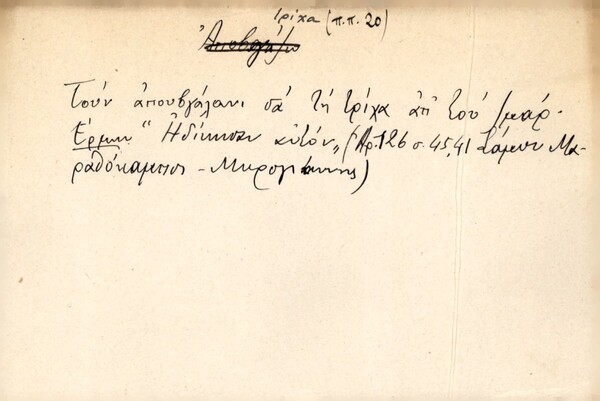 τρίχα (π.π. 20)
Ἀποβγάζω
Τοὺν ἀπουβγάλανι σὰ τὴ τρίχα ἀπ' τοὺ ζμάρ.
Ἑρμην. "Ἠδίκησαν αὐτόν„ (Ἀρ. 126 σ. 45,41 Σάμου Μα-
ραθόκαμπος - Μυρογιάννης)